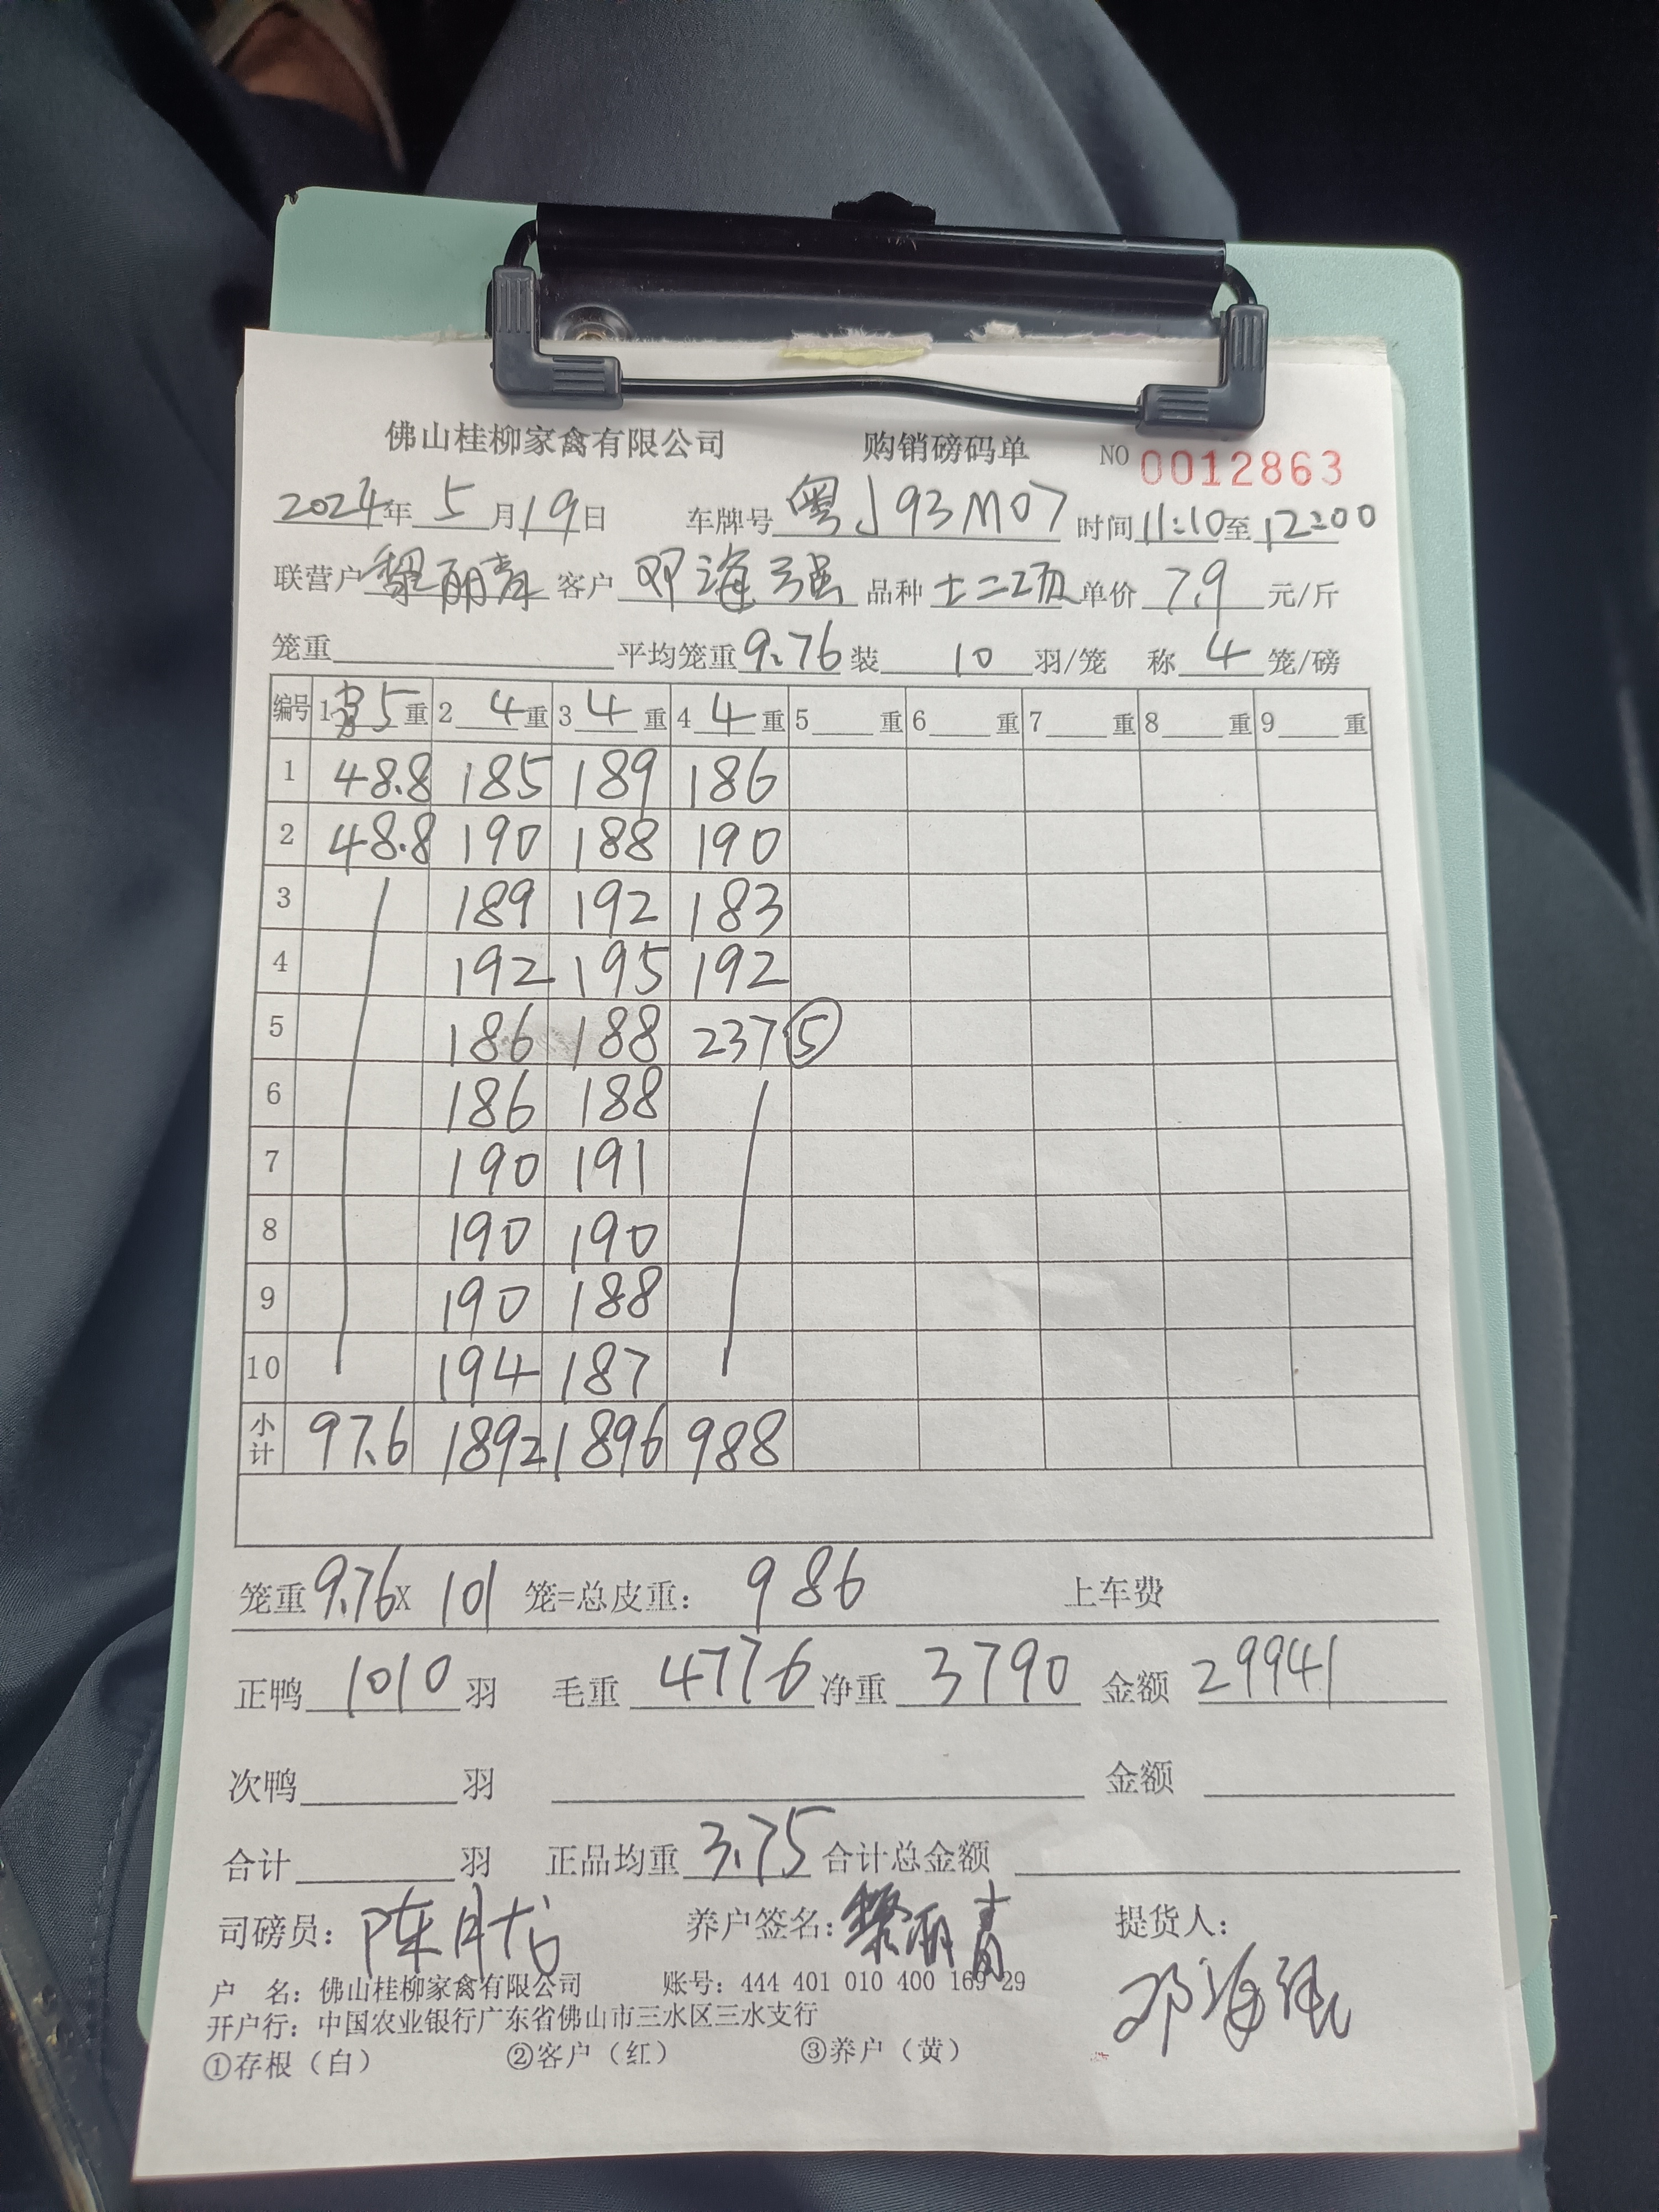 佛山桂柳家禽有限公司 购销磅码单 NO 0012863
2024年 5 月 19 日 车牌号 粤J93M07 时间 11:10 至 12:00
联营户 黎丽青 客户 邓海强 品种 土二项 单价 7.9 元/斤
笼重 平均笼重 9.76 装 10 羽/笼 称 4 笼/磅
编号 1 5 重 2 4 重 3 4 重 4 4 重 5 重 6 重 7 重 8 重 9 重
1 48.8 185 189 186
2 48.8 190 188 190
3 189 192 183
4 192 195 192
5 186 188 237 ⑤
6 186 188
7 190 191
8 190 190
9 190 188
10 194 187
小计 97.6 1892 1896 988
笼重 9.76 X 101 笼=总皮重: 986 上车费
正鸭 1010 羽 毛重 4776 净重 3790 金额 29941
次鸭 羽 金额
合计 羽 正品均重 3.75 合计总金额
司磅员: 陈月 养户签名: 黎丽青 提货人: 邓海强
户 名: 佛山桂柳家禽有限公司 账号: 444 401 010 400 169 29
开户行: 中国农业银行广东省佛山市三水区三水支行
①存根（白） ②客户（红） ③养户（黄）